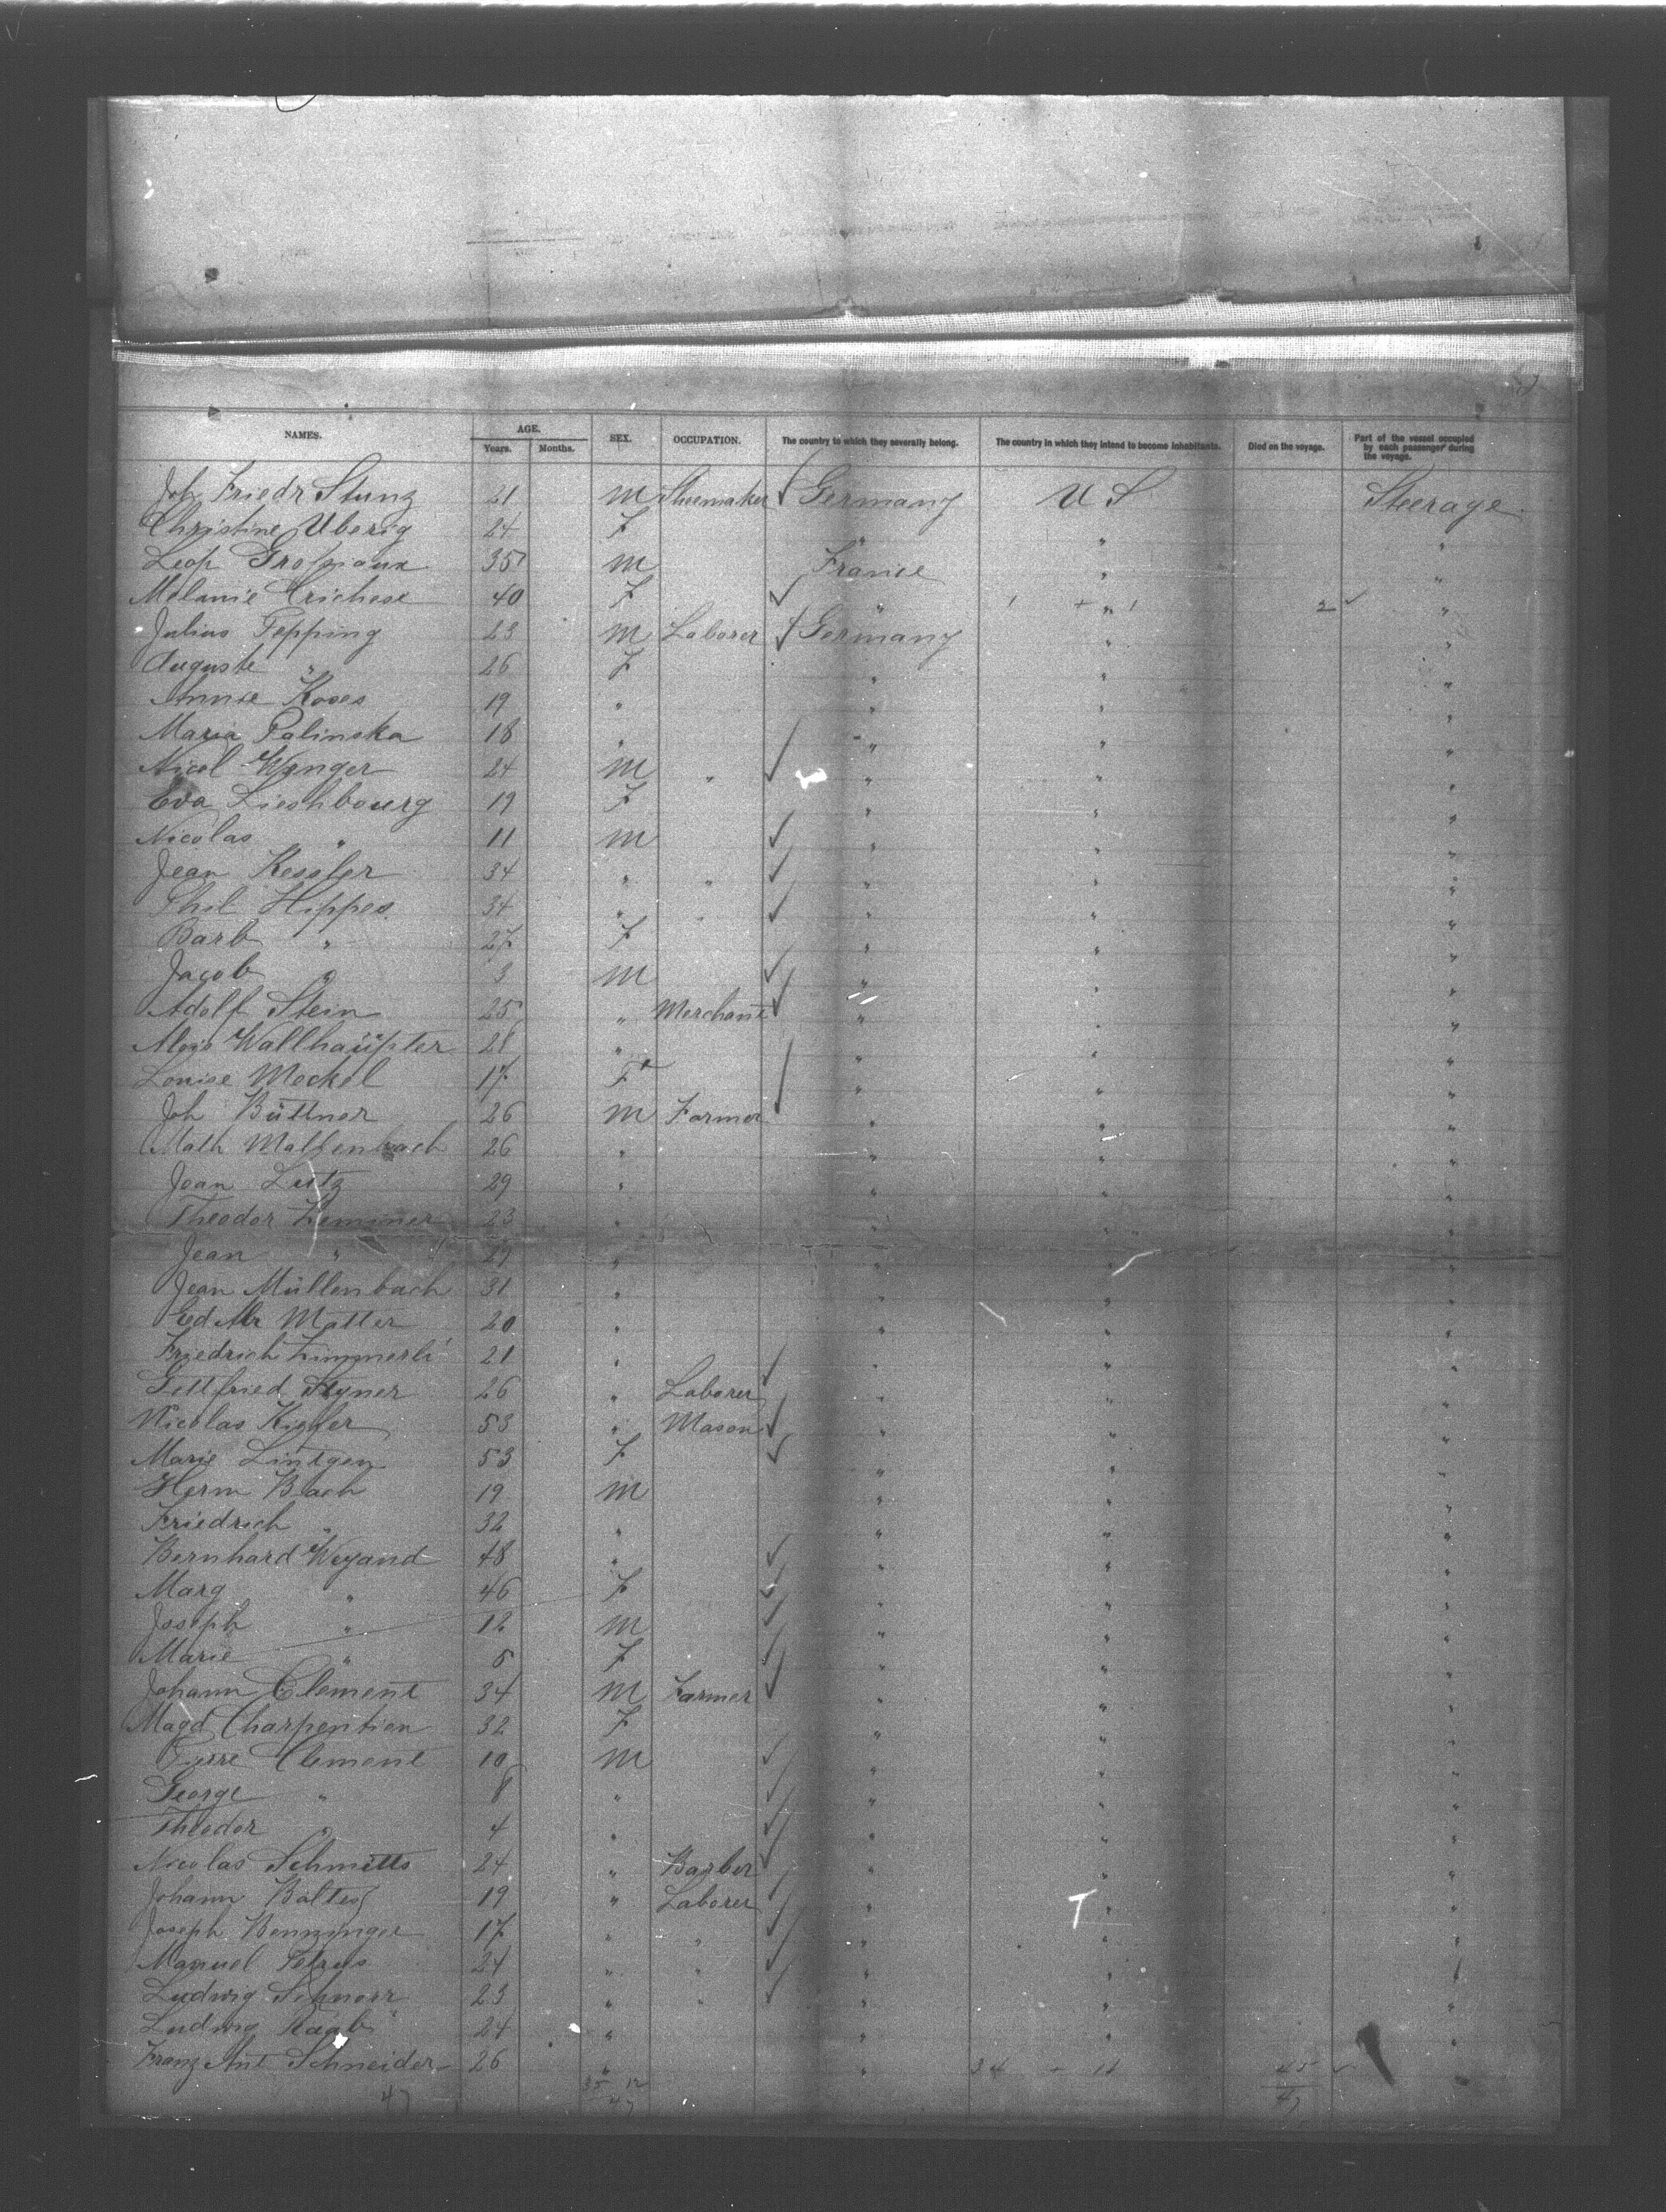 NAMES. AGE. Years. Months. SEX. OCCUPATION. The country to which they severally belong. The country in which they intend to become inhabitants. Died on the voyage. Part of the vessel occupied by each passenger during the voyage.
Joh Friedr Stunz 21 M Shoemaker ✓ Germany U S Steerage
Christine Uberig 24 F " " "
Leop 35 M France " "
Melanie 40 F ✓ " " 2 ✓ "
Julius Tepping 23 M Laborer ✓ Germany " "
Auguste " 26 F " " "
Annie Koses 19 " " " "
Maria Palinska 18 " " " "
Nicol Wenger 24 M " ✓ " " "
Eva Lieshbourg 19 F " " "
Nicolas " 11 M ✓ " " "
Jean Kessler 34 " " ✓ " " "
Phil Hippes 34 " " ✓ " " "
Barb " 27 F " " "
Jacob " 3 M ✓ " " "
Adolf Stein 25 " Merchant ✓ " " "
Alois Wallhaüpter 28 " " " "
Louise Meckel 17 F ✓ " " "
Joh Büttner 26 M Farmer " " "
Math 26 " " " "
Jean Lutz 29 " " " "
Theodor Zemmer 23 " " " "
Jean " 27 " " " "
Jean Müllenbach 31 " " " "
Ed Matter 20 " " " "
Friedrich Zimmerli 21 " ✓ " " "
Gottfried Signer 26 " Laborer " " "
Nicolas Kiefer 53 " Mason ✓ " " "
Marie Lintgen 53 F ✓ " " "
Herm Bach 19 M " " "
Friedrich " 32 " " " "
Bernhard Weyand 48 " ✓ " " "
Marg " 46 F ✓ " " "
Joseph " 12 M ✓ " " "
Marie " 5 F ✓ " " "
Johann Clement 34 M Farmer ✓ " " "
Magd Charpentier 32 F " " "
Pierre Clement 10 M ✓ " " "
George " 8 " ✓ " " "
Theodor " 4 " ✓ " " "
Nicolas Schmitts 24 " Barber ✓ " " "
Johann Baltes 19 " Laborer ✓ " " "
Joseph Benninger 17 " " ✓ " " "
Manuel Petrus 24 " " ✓ " " "
Ludwig Schnorr 23 " " ✓ " " "
Ludwig Raab 24 " " " "
Franz Ant Schneider 26 " " 34 - 11 45 ✓ "
47 35 12 47 47